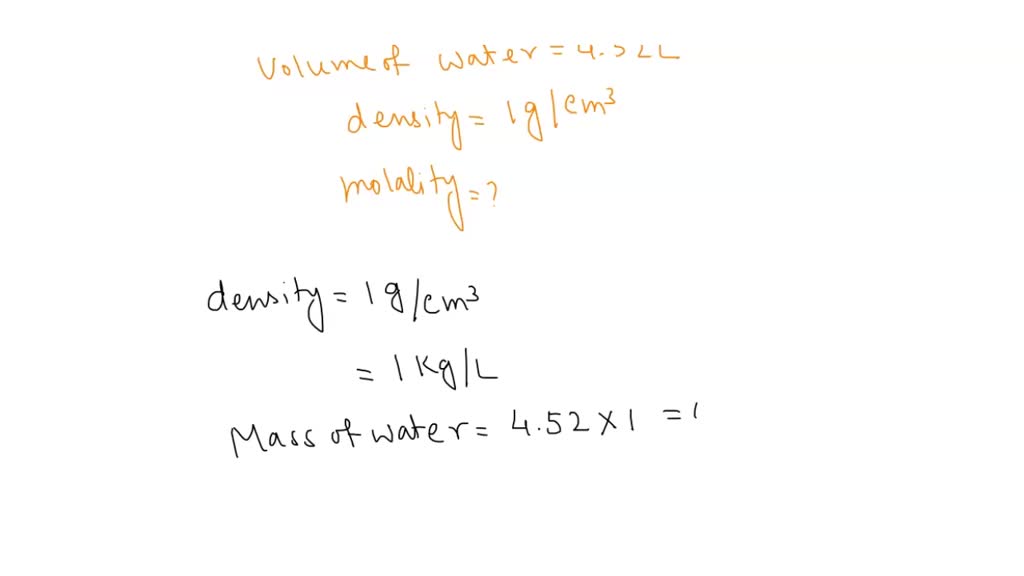 Volume of water = 4.52L
density = 1g/cm³
molality = ?
density = 1g/cm³
= 1Kg/L
Mass of water = 4.52 × 1 =